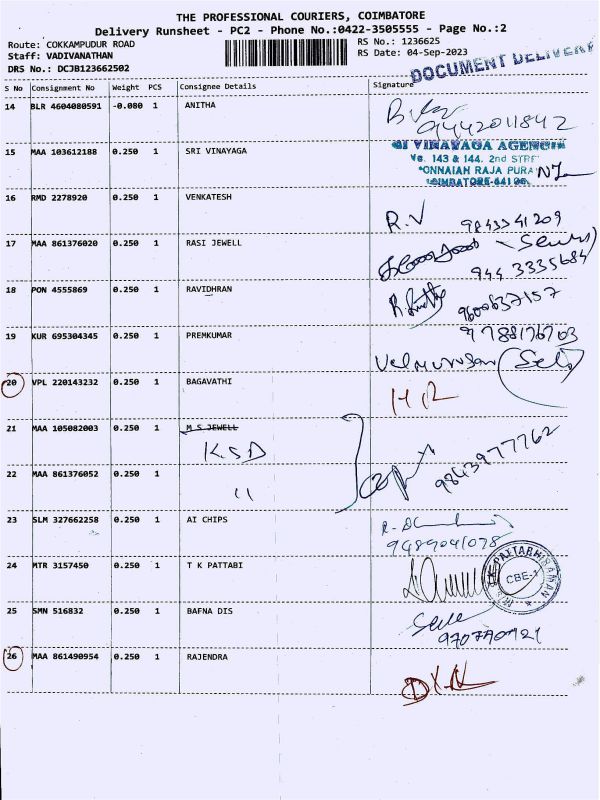 THE PROFESSIONAL COURIERS, COIMBATORE
Delivery Runsheet - PC2 - Phone No.:0422-3505555 - Page No.:2
Route: COKKAMPUDUR ROAD RS No.: 1236625
Staff: VADIVANATHAN RS Date: 04-Sep-2023
DRS No.: DCJB123662502 DOCUMENT DELIVERY
S No Consignment No Weight PCS Consignee Details Signature
14 BLR 4604080591 -0.080 1 ANITHA
9442011842
15 MAA 103612188 0.250 1 SRI VINAYAGA
VINAYAGA AGENCIE
143 & 144. 2nd STRE
ONNAIAH RAJA PURA
COIMBATORE-641
16 RMD 2278920 0.250 1 VENKATESH
R.V 9843341209
17 MAA 861376020 0.250 1 RASI JEWELL
944 3335684
18 PON 4555869 0.250 1 RAVIDHRAN
9600637157
19 KUR 695304345 0.250 1 PREMKUMAR
9788176703
Velmurugan (Self)
20 VPL 220143232 0.250 1 BAGAVATHI
21 MAA 105082003 0.250 1 M S JEWELL
K.S.D
9843977762
22 MAA 861376052 0.250 1
"
23 SLM 327662258 0.250 1 AI CHIPS
9489041078
24 MTR 3157450 0.250 1 T K PATTABI
PATTABHIRAMAN
CBE-1
25 SMN 516832 0.250 1 BAFNA DIS
26 MAA 861490954 0.250 1 RAJENDRA